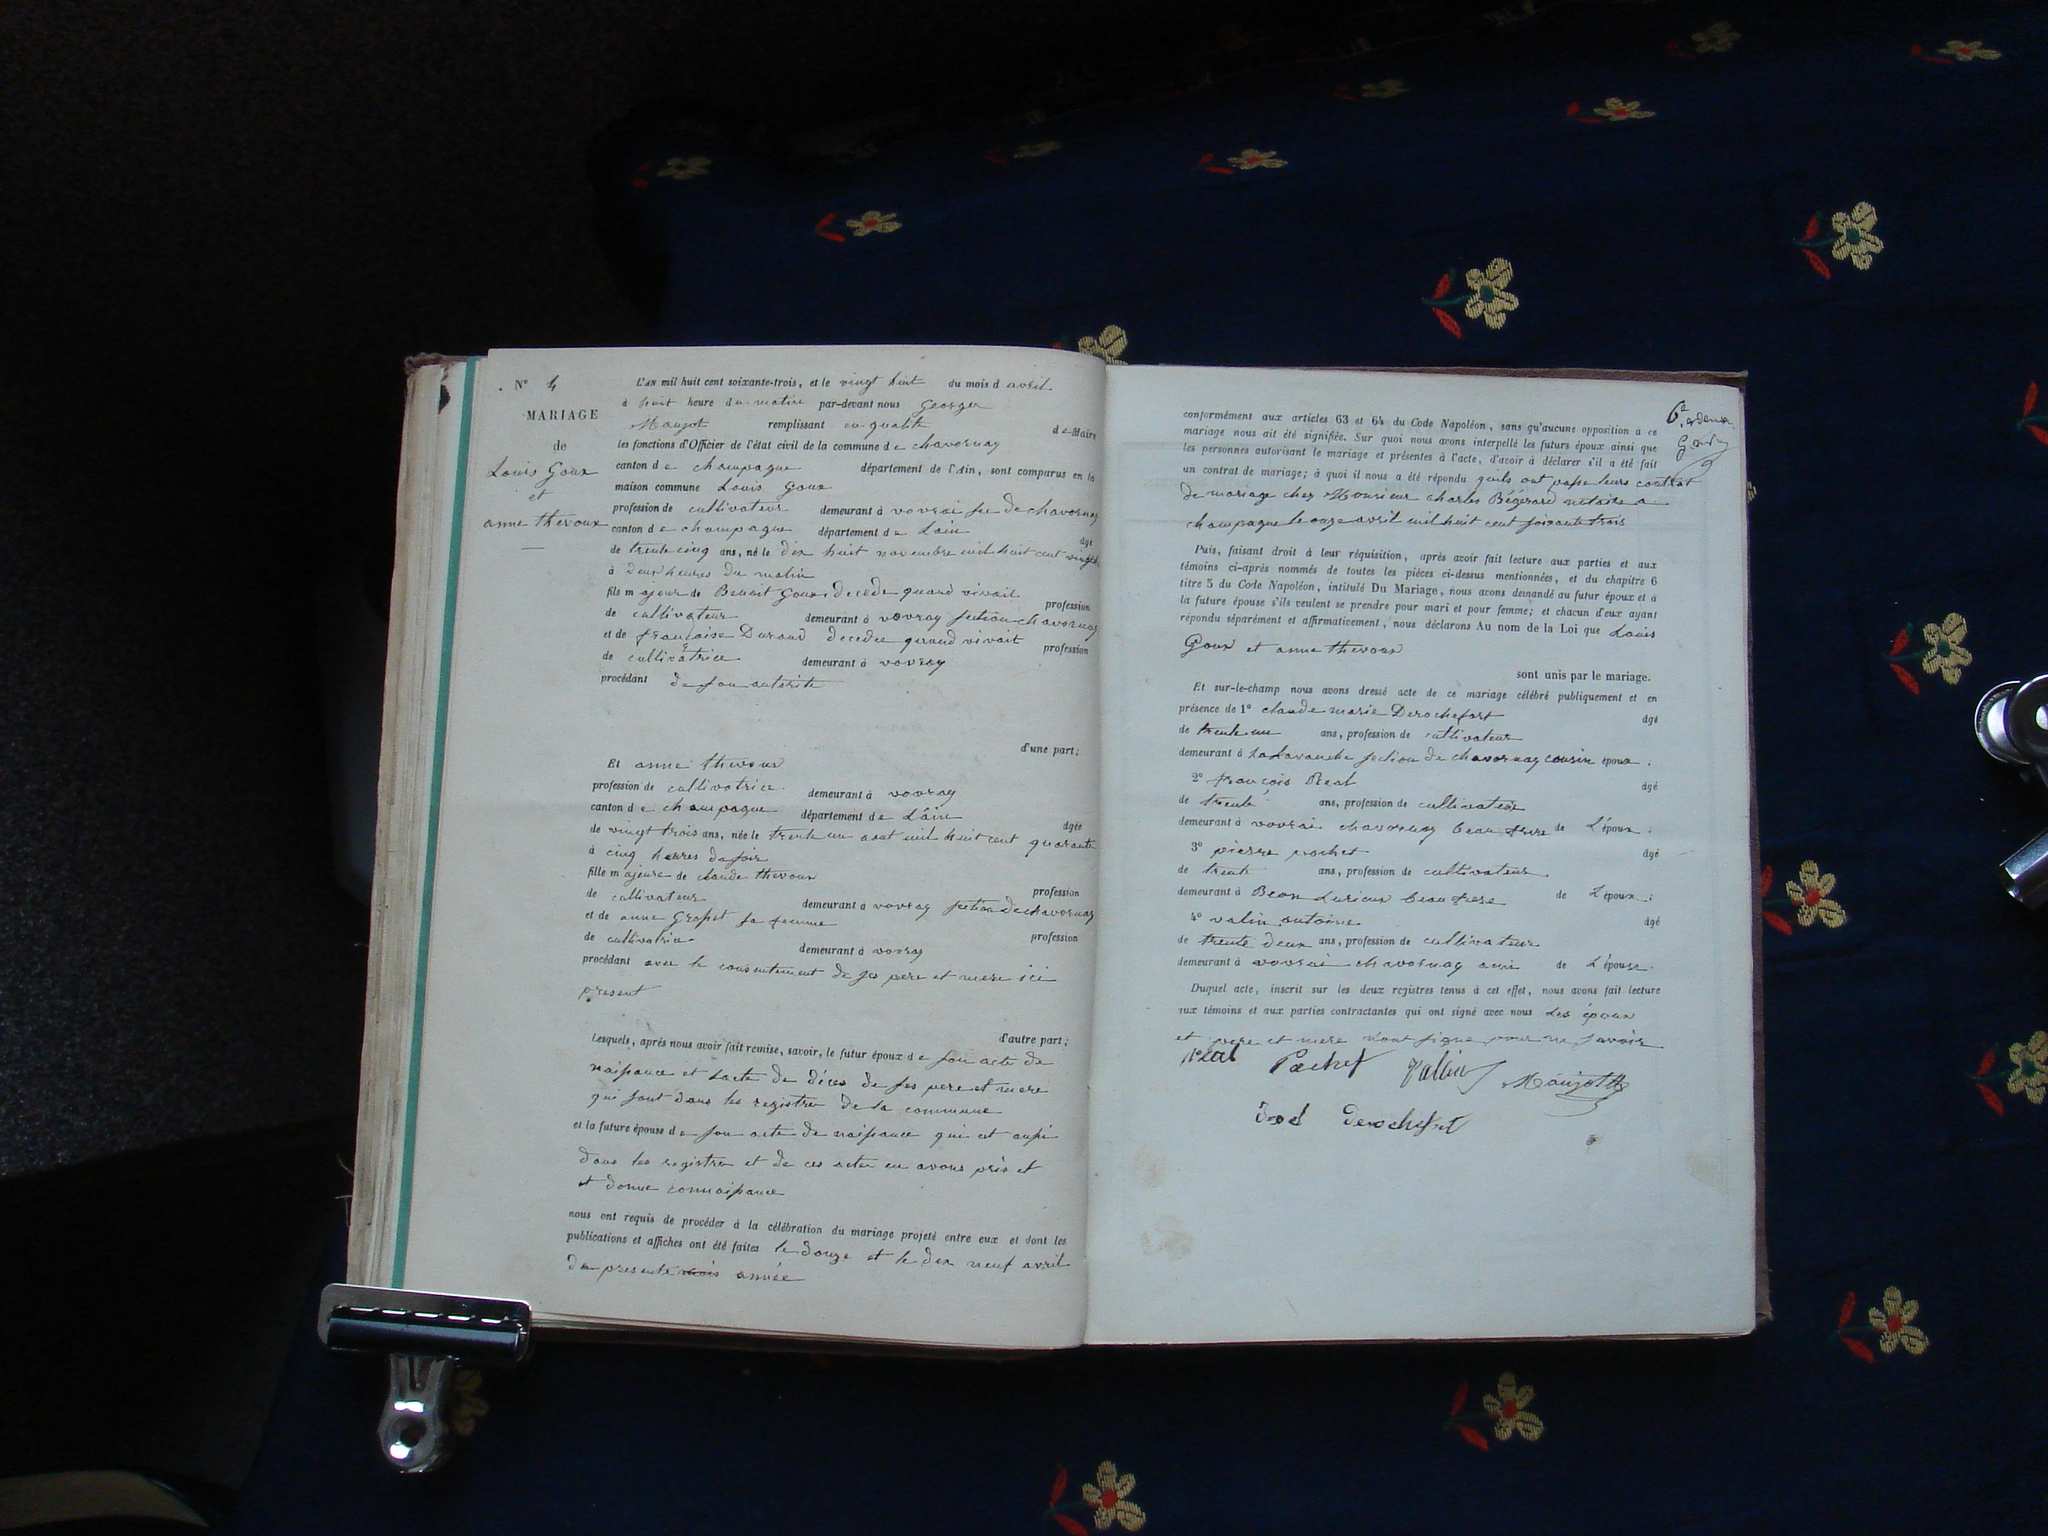 N° 4
MARIAGE
de
Louis Goux
et
anne thevoux
L'AN mil huit cent soixante-trois, et le vingt huit du mois d avril
à huit heure du matin par-devant nous Georges
Maujot remplissant en qualité de Maire
les fonctions d'Officier de l'état civil de la commune de chavornay
canton de champagne département de l'Ain, sont comparus en la
maison commune Louis Goux
profession de cultivateur demeurant à vovrai sec de chavornay
canton de champagne département de Lain âgé
de trente cinq ans, né le dix huit novembre mil huit cent vingt
à Deux heures du matin
fils majeur de Benoit Goux Decede quand vivait profession
de cultivateur demeurant à vovray section chavornay
et de françoise Durand decedee quand vivait profession
de cultivatrice demeurant à vovray
procédant de son autorite
d'une part;
Et anne thevoux
profession de cultivatrice demeurant à vovray
canton de champagne département de L'ain âgée
de vingt trois ans, née le trente un aout mil huit cent quarante
à cinq heures du soir
fille majeure de claude thevoux profession
de cultivateur demeurant à vovray section de chavornay
et de anne Grosset sa femme profession
de cultivatrice demeurant à vovray
procédant avec le consentement de ses pere et mere ici
present
d'autre part;
Lesquels, après nous avoir fait remise, savoir, le futur époux de son acte de
naissance et lacte de décès de ses pere et mere
qui sont dans les registres de la commune
et la future épouse de son acte de naissance qui est aussi
dans les registres et de ces actes en avons pris et
et donne connaissance
nous ont requis de procéder à la célébration du mariage projeté entre eux et dont les
publications et affiches ont été faites le douze et le dix neuf avril
de presente mois année
conformément aux articles 63 et 64 du Code Napoléon, sans qu'aucune opposition a ce
mariage nous ait été signifiée. Sur quoi nous avons interpellé les futurs époux ainsi que
les personnes autorisant le mariage et présentes à l'acte, d'avoir à déclarer s'il a été fait
un contrat de mariage; à quoi il nous a été répondu quils ont passe leurs contrat
de mariage chez Monsieur charles Bégérard notaire a
champagne le onze avril mil huit cent soixante trois
Puis, faisant droit à leur réquisition, après avoir fait lecture aux parties et aux
témoins ci-après nommés de toutes les pièces ci-dessus mentionnées, et du chapitre 6
titre 5 du Code Napoléon, intitulé Du Mariage, nous avons demandé au futur époux et à
la future épouse s'ils veulent se prendre pour mari et pour femme; et chacun d'eux ayant
répondu séparément et affirmativement, nous déclarons Au nom de la Loi que Louis
Goux et anne thevoux
sont unis par le mariage.
Et sur-le-champ nous avons dressé acte de ce mariage célébré publiquement et en
présence de 1° claude marie Derochefort âgé
de trente un ans, profession de cultivateur
demeurant à la Lavanche section de chavornay cousin époux.
2° françois Réal âgé
de trente ans, profession de cultivateur
demeurant à vovrai chavornay beau frere de L'époux.
3° pierre pochet âgé
de trente ans, profession de cultivateur
demeurant à Béon Luyrieux beau frere de L'époux;
4° valin antoine âgé
de trente deux ans, profession de cultivateur
demeurant à vovrai chavornay ami de L'épouse.
Duquel acte, inscrit sur les deux registres tenus à cet effet, nous avons fait lecture
aux témoins et aux parties contractantes qui ont signé avec nous Les époux
et pere et mere n'ont signe pour ne savoir
Real Pochet Vallin Maujot
Derochefort